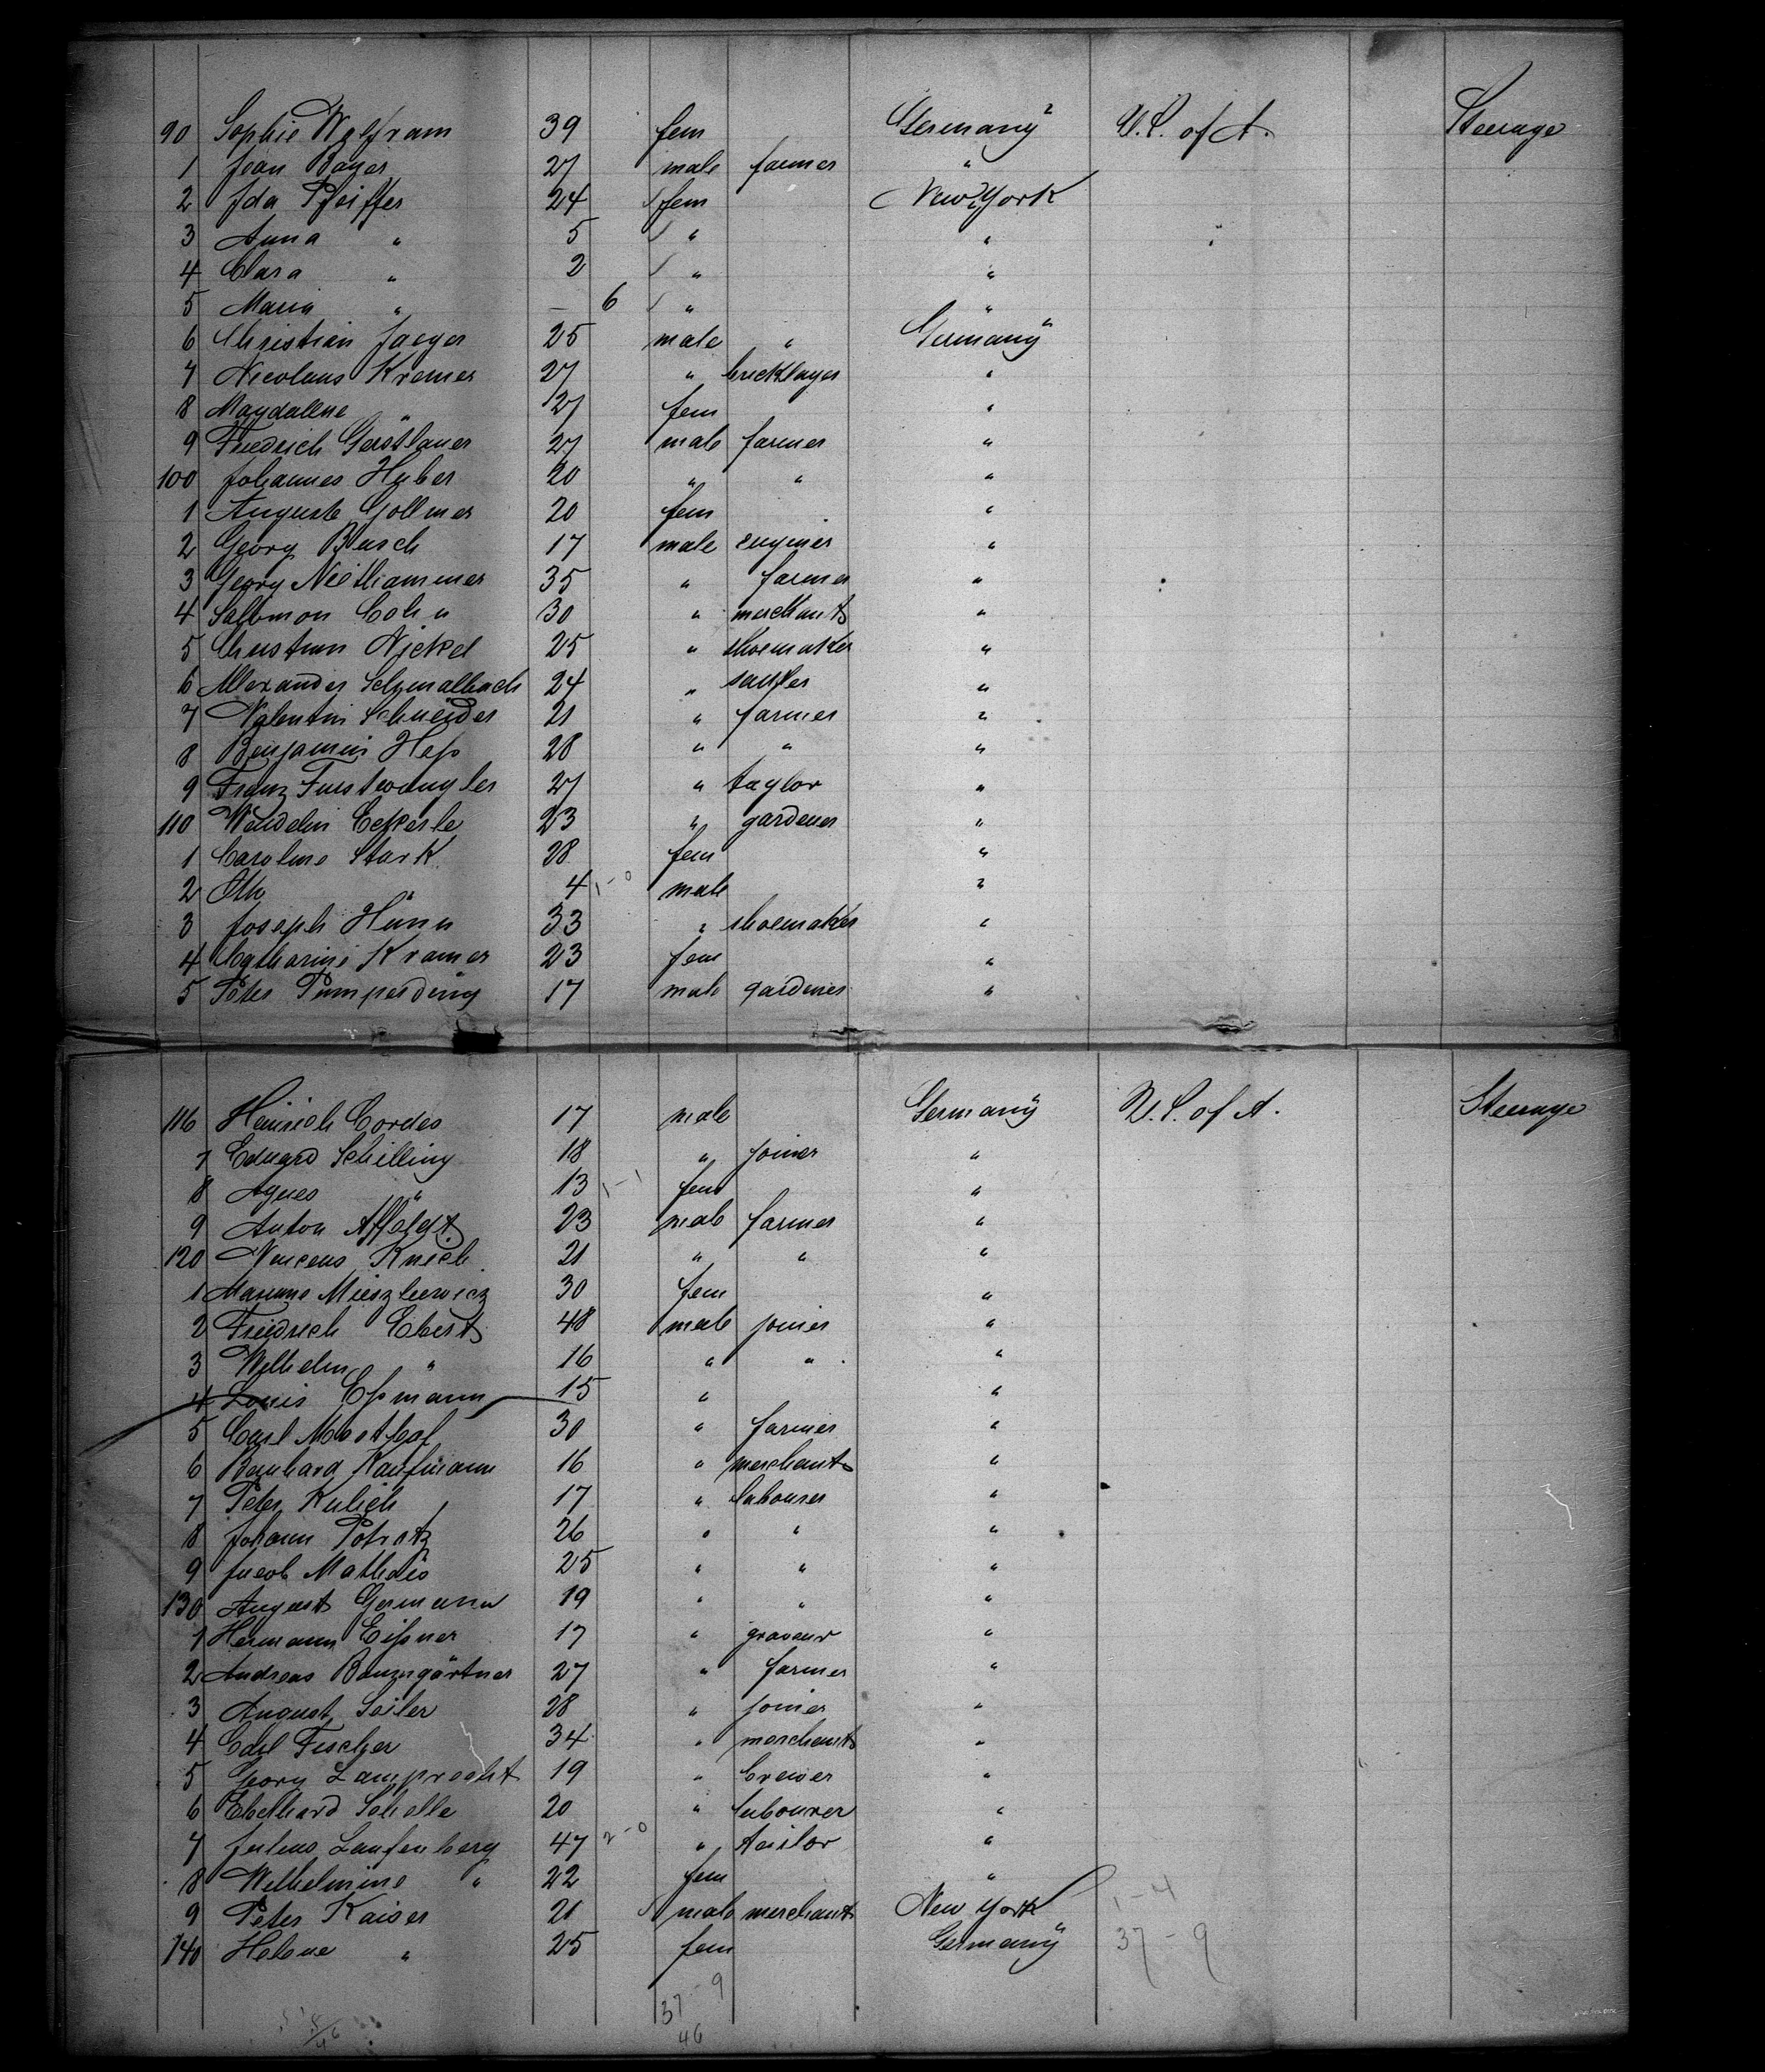 90 Sophie Wolfram 39 fem Germany U.S. of A. Steerage
1 Jean Bayer 27 male farmer "
2 Ida Pfeiffer 24 / fem New York
3 Anna " 5 / " "
4 Clara " 2 / " "
5 Maria " — 6 / " "
6 Christian Jaeger 25 male " Germany
7 Nicolaus Kremer 27 " bricklayer "
8 Magdallene " 27 fem "
9 Friedrich Gerstlauer 27 male farmer "
100 Johannes Huber 20 " " "
1 Auguste Gollmer 20 fem "
2 Georg Busch 17 male enginer "
3 Georg Niethammer 35 " farmer "
4 Salomon Cohn 30 " merchant "
5 Christian Nickel 25 " shoemaker "
6 Alexander Schmalbach 24 " "
7 Valentin Schneider 21 " farmer "
8 Benjamin Heß 28 " " "
9 Franz Furtwaengler 27 " taylor "
110 Wendelin Eckerle 23 " gardener "
1 Caroline Stark 28 fem "
2 Otto 4 1-0 male "
3 Joseph Hünn 33 " shoemaker "
4 Catharine Kramer 23 fem "
5 Peter Pumperding 17 male gardener "
116 Heinrich Cordes 17 male Germany U.S. of A. Steerage
7 Eduard Schilling 18 " joiner "
8 Agnes " 13 1-1 fem "
9 Anton Affeldt 23 male farmer "
120 Vincens 21 " " "
1 30 fem "
2 Friedrich Ebert 48 male joiner "
3 Wilhelm " 16 " " "
4 Louis Eßmann 15 " "
5 Carl 30 " farmer "
6 Bernhard Kaufmann 16 " merchant "
7 Peter Kulich 17 " labourer "
8 Johann Potratz 26 " " "
9 Jacob Matheis 25 " " "
130 August Germann 19 " " "
1 Hermann Eißner 17 " graveur "
2 Andreas Baumgärtner 27 " farmer "
3 August Seiler 28 " joiner "
4 Edel Fischer 34 " merchant "
5 Georg Lamprecht 19 " brewer "
6 Eberhard Schelle 20 " labourer "
7 Julius Laufenberg 47 2-0 " tailor "
8 Wilhelmine " 22 fem "
9 Peter Kaiser 21 / male merchant New York 1-4
140 Helene " 25 fem Germany 37-9
37-9
46